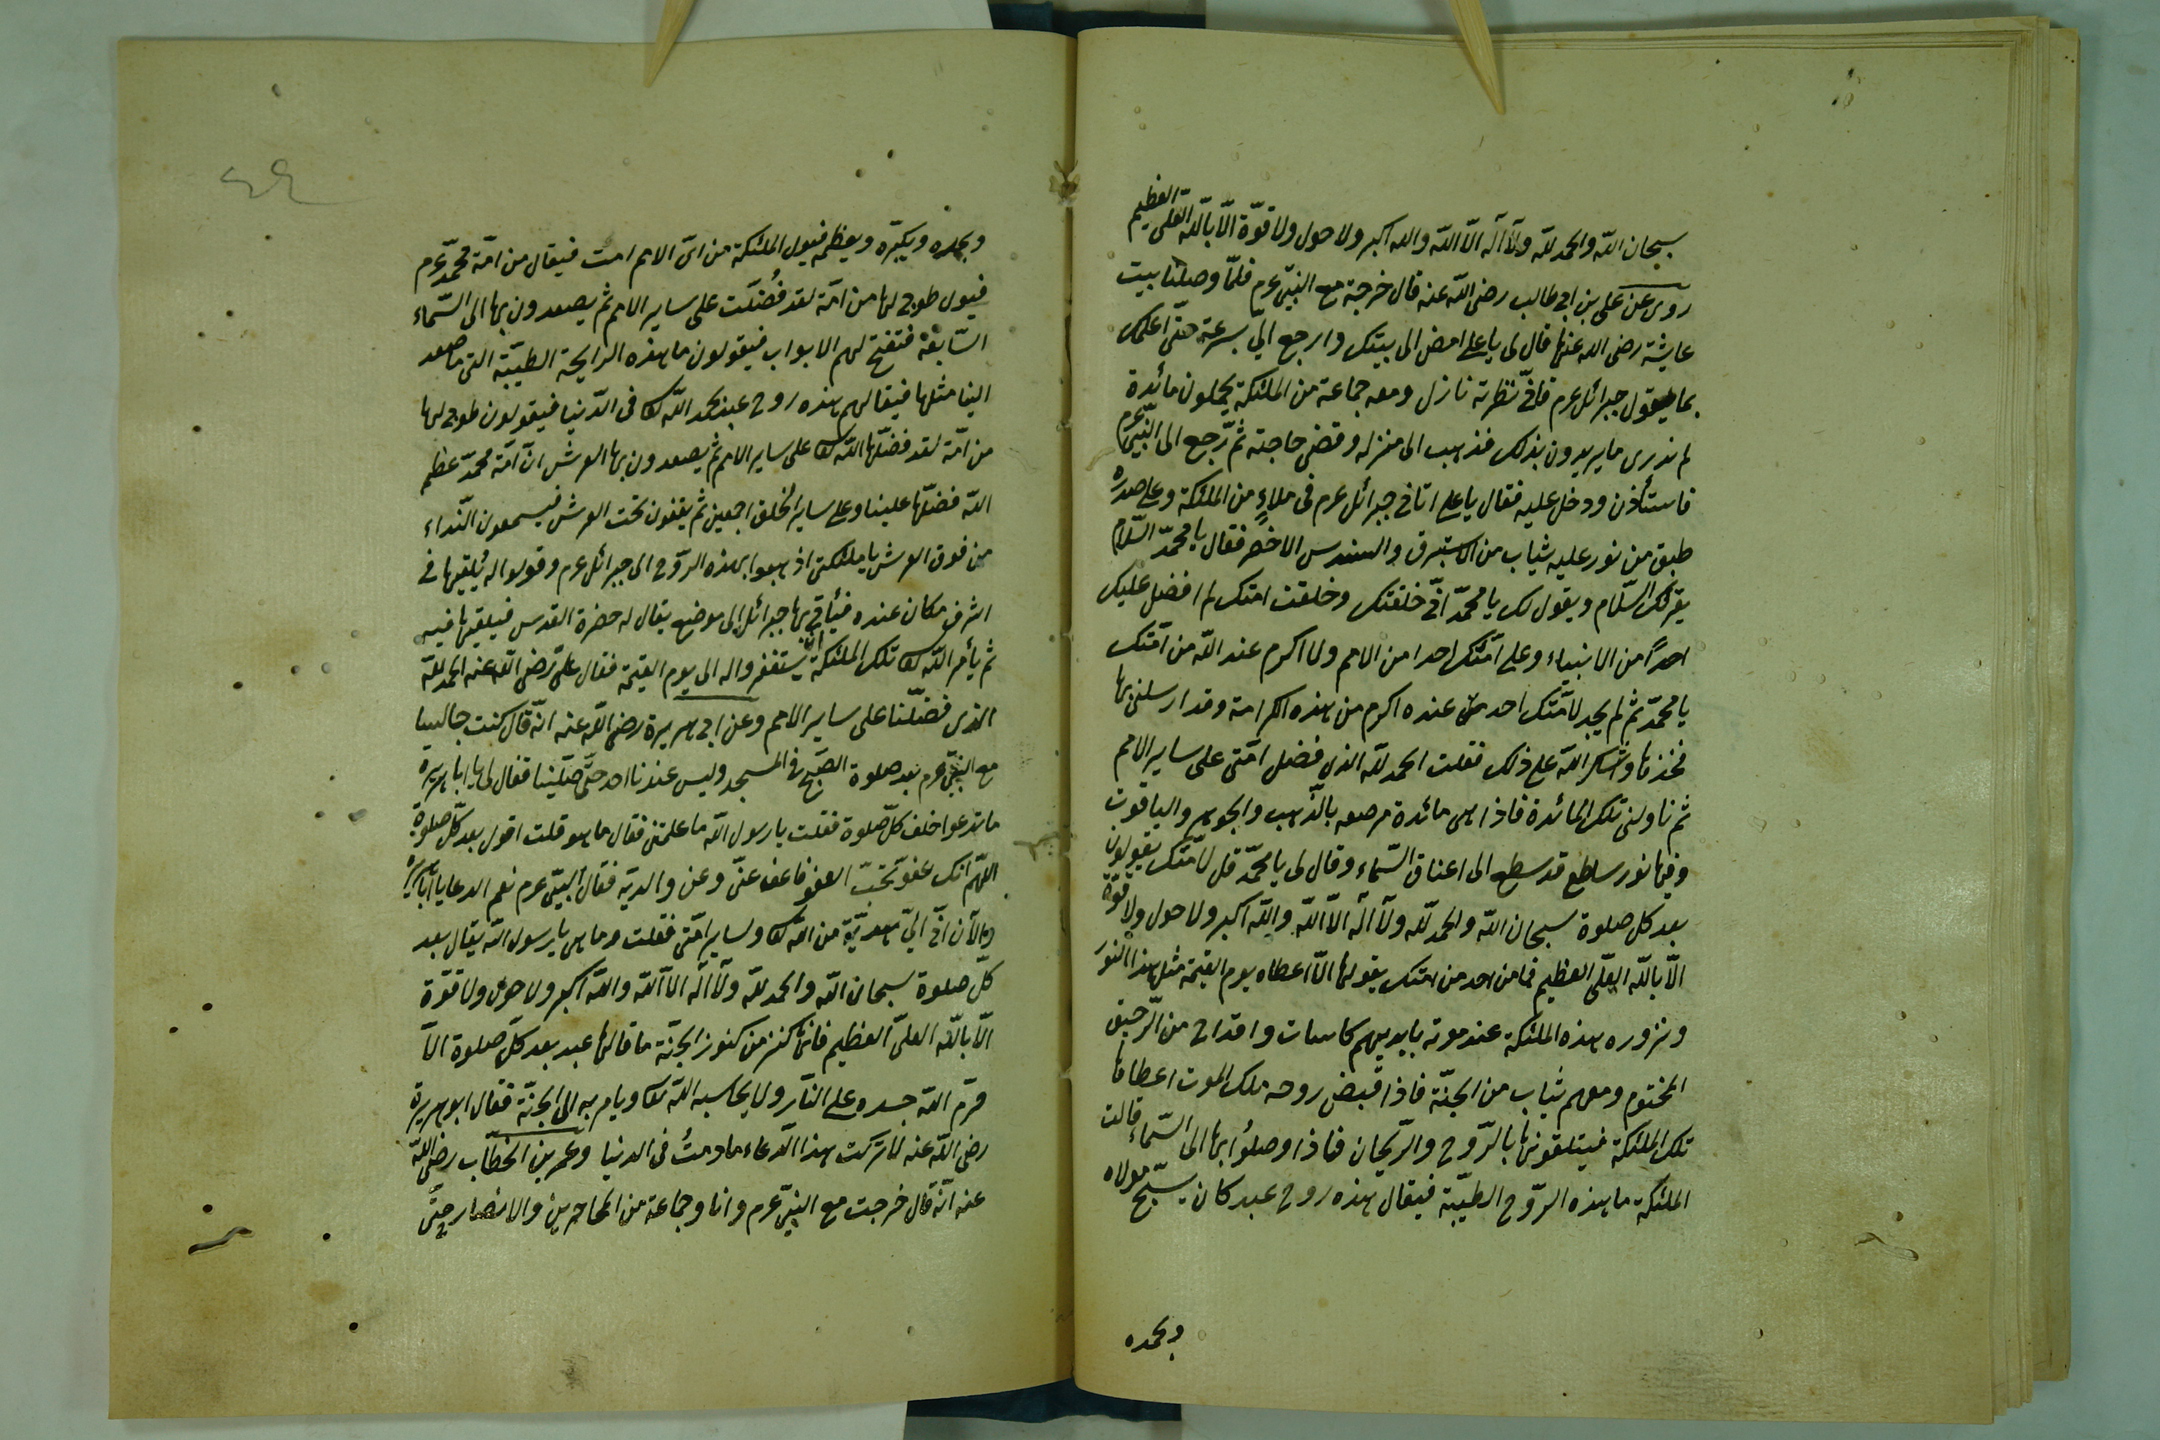 العظيم
سبحان اللّه والحمد للّه ولآ اله الّا اللّه واللّه اكبر ولا حول ولا قوّة الّا باللّه العلى
روى عن على بن ابى طالب رضى اللّه عنه قال خرجة مع النبىّ عم فلمّا وصلنا بيت
عايشة رضى اللّه عنها قال لى يا على امض الى بيتك وارجع الىّ بسرعة حتّى اعلمك
بما يقول جبرائل عم فانّى نظرته نازل ومعه جماعة من الملئكة يحملون مائدة
لم ندرى ما يريدون بذلك فذهب الى منزله وقضى حاجته ثمّ رجع الى النبىّ عم
فاستأذن ودخل عليه فقال يا على اتانى جبرائل عم فى ملاءٍ من الملئكة وعلى صدره
طبق من نور عليه ثياب من الاستبرق والسندس الاخضر فقال يا محمّد السّلام
يقرئك السّلام ويقول لك يا محمّد انّى خلقتك وخلقت امتك لم افضل عليك
احداً من الانبياء وعلى امّتك احدا من الامم ولا اكرم عند اللّه من امّتك
يا محمّد ثم لم يجد لامّتك احد من عنده اكرم من هذه الكرامة وقد ارسلنى بها
فخذها واشكر اللّه على ذلك فقلت الحمد للّه الذى فضل امّتى على ساير الامم
ثم ناولنى تلك المائدة فاذا هى مائدة مرصعه بالذّهب والجوهر والياقوت
وفيها نور ساطع قد سطع الى اعناق السّماء وقال لى يا محمّد قل لامّتك يقولون
بعد كل صلوة سبحان اللّه والحمد للّه ولآ اله الّا اللّه واللّه اكبر ولا حول ولا قوّة
الّا باللّه العلّى العظيم فما من احد من امتك يقولها الّا اعطاه يوم القيمة مثل هذا النّور
وتزوره هذه الملئكة عند موته بايديهم كاسات واقداح من الرّحيق
المختوم ومعهم ثياب من الجنّة فاذا قبض روحه ملك الموت اعطاها
تلك الملئكة فيتلقونها بالرّوح والرّيحان فاذا وصلوا بها الى السّماء قالت
الملئكة ما هذه الرّوح الطيّبة فيقال هذه روح عبد كان يسبّح مولاه
وبحمده
وبحمده ويكبّره ويعظّمه فيول الملئكة من اىّ الامم امت فيقال من امّة محمّد عم
فيول طوبى لها من امّة لقد فُضلت على ساير الامم ثم يصعدون بها الى السّماء
السّابعة فتفتح لهم الابواب فيقولون ما هذه الرايحة الطيّبة التى ما صعد
الينا مثلها فيقالهم هذه روح عبد يحمد اللّه تعا فى الدّنيا فيقولون طوبى لها
من امّة لقد فضّلها اللّه تعا على ساير الامم ثم يصعدون بها العرش انّ امّة محمّد عظم
اللّه فضّلها علينا وعلى ساير الخلق اجمعين ثم يقفون تحت العرش فيسمعون النّداء
من فوق العرش يا ملئكتى اذهبوا بهذه الرّوح الى جبرائل عم وقولوا له يُلقيها فى
اشرف مكان عنده فيأتى بها جبرائل الى موضع يقال له حضرة القدس فيلقيها فيه
ثم يأمر اللّه تعا تلك الملئكة ان يستغفروا له الى يوم القيمة فقال على رضى اللّه عنه الحمد للّه
الذى فضّلنا على ساير الامم وعن ابى هريرة رضى اللّه عنه انّه قال كنت جاليسا
مع النبىّ عم بعد صلوة الصّبح فى المسجد وليس عندنا احد حتّى صلّينا فقال لى يا ابا هريرة
ما تدعوا خلف كلّ صلوة فقلت يا رسول اللّه ما علمتنى فقال ما هو قلت اقول بعد كلّ صلوة
اللّهم انّك عفوّ تحبّ العفو فاعف عنّى وعن والديّه فقال النبىّ عم نعم الدعا يا ابا هريرة
والآن اتى الىّ هديّة من اللّه تعا ولساير امّتى فقلت وما هى يا رسول اللّه يقال بعد
كلّ صلوة سبحان اللّه والحمد للّه ولآ اله الّا اللّه واللّه اكبر ولا حول ولا قوّة
الّا باللّه العلىّ العظيم فانّها كنز من كنوز الجنّة ما قالها عبد بعد كلّ صلوة الّا
حرّم اللّه جسده على النّار ولا يحاسبه اللّه تعا ويامر به الى الجنّة فقال ابو هريرة
رضى اللّه عنه لا تركت هذا الدّعاء ما دمتُ فى الدنيا وعمر بن الخطّاب رضى اللّه
عنه انّه قال خرجت مع النبىّ عم وانا وجماعة من المهاجرين والانصار حتّى